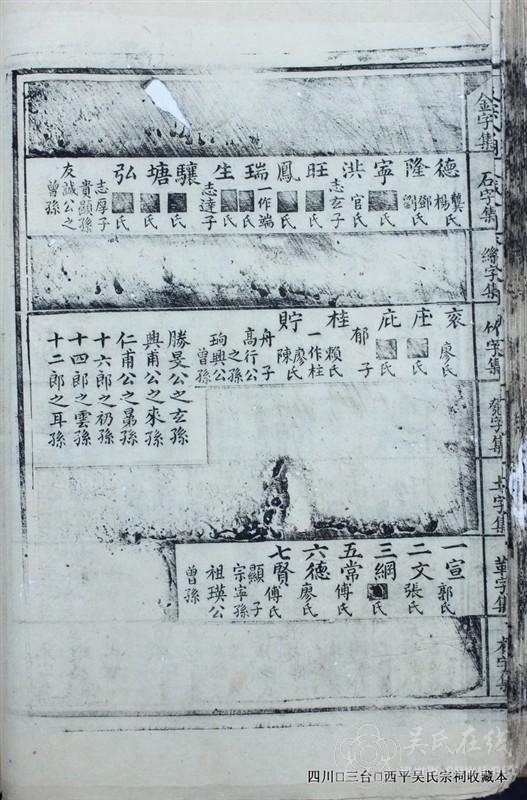 金字集
石字集
絲字集
竹字集
匏字集
土字集
革字集
木字集
德 龔氏 楊
隆 鄧氏 劉
寧 ■氏
洪 官氏
志玄子
旺 ■氏
鳳 ■氏
瑞 一作端
生 ■氏
志達子
驤 ■氏
塘 ■氏
弘 ■氏
志厚子
貴顯孫
友誠公之
曾孫
袞 廖氏
庄 ■氏
庇 ■氏
郁子
桂 賴氏
一作柱
貯 廖氏 陳
舟子
高行公
之孫
珦興公
曾孫
勝旻公之玄孫
興甫公之來孫
仁甫公之晜孫
十六郎之礽孫
十四郎之雲孫
十二郎之耳孫
一宣 郭氏
二文 張氏
三綱 ■氏
五常 傅氏
六德 廖氏
七賢 傅氏
顯子
宗寧孫
祖瑛公
曾孫
吴氏在线
四川□三台□西平吴氏宗祠收藏本